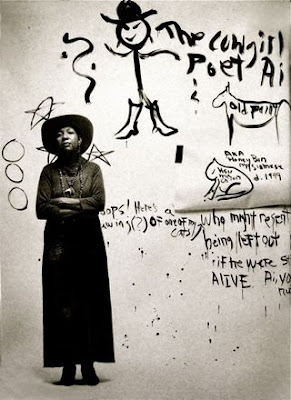 The Cowgirl
Poet Ai
old paint
AKA
Honey Bun
my siamese
d. 1999
oops! Here's a
drawing(?) of one of my
cats)
who might resent
being left out
if he were
ALIVE. Ai, yo